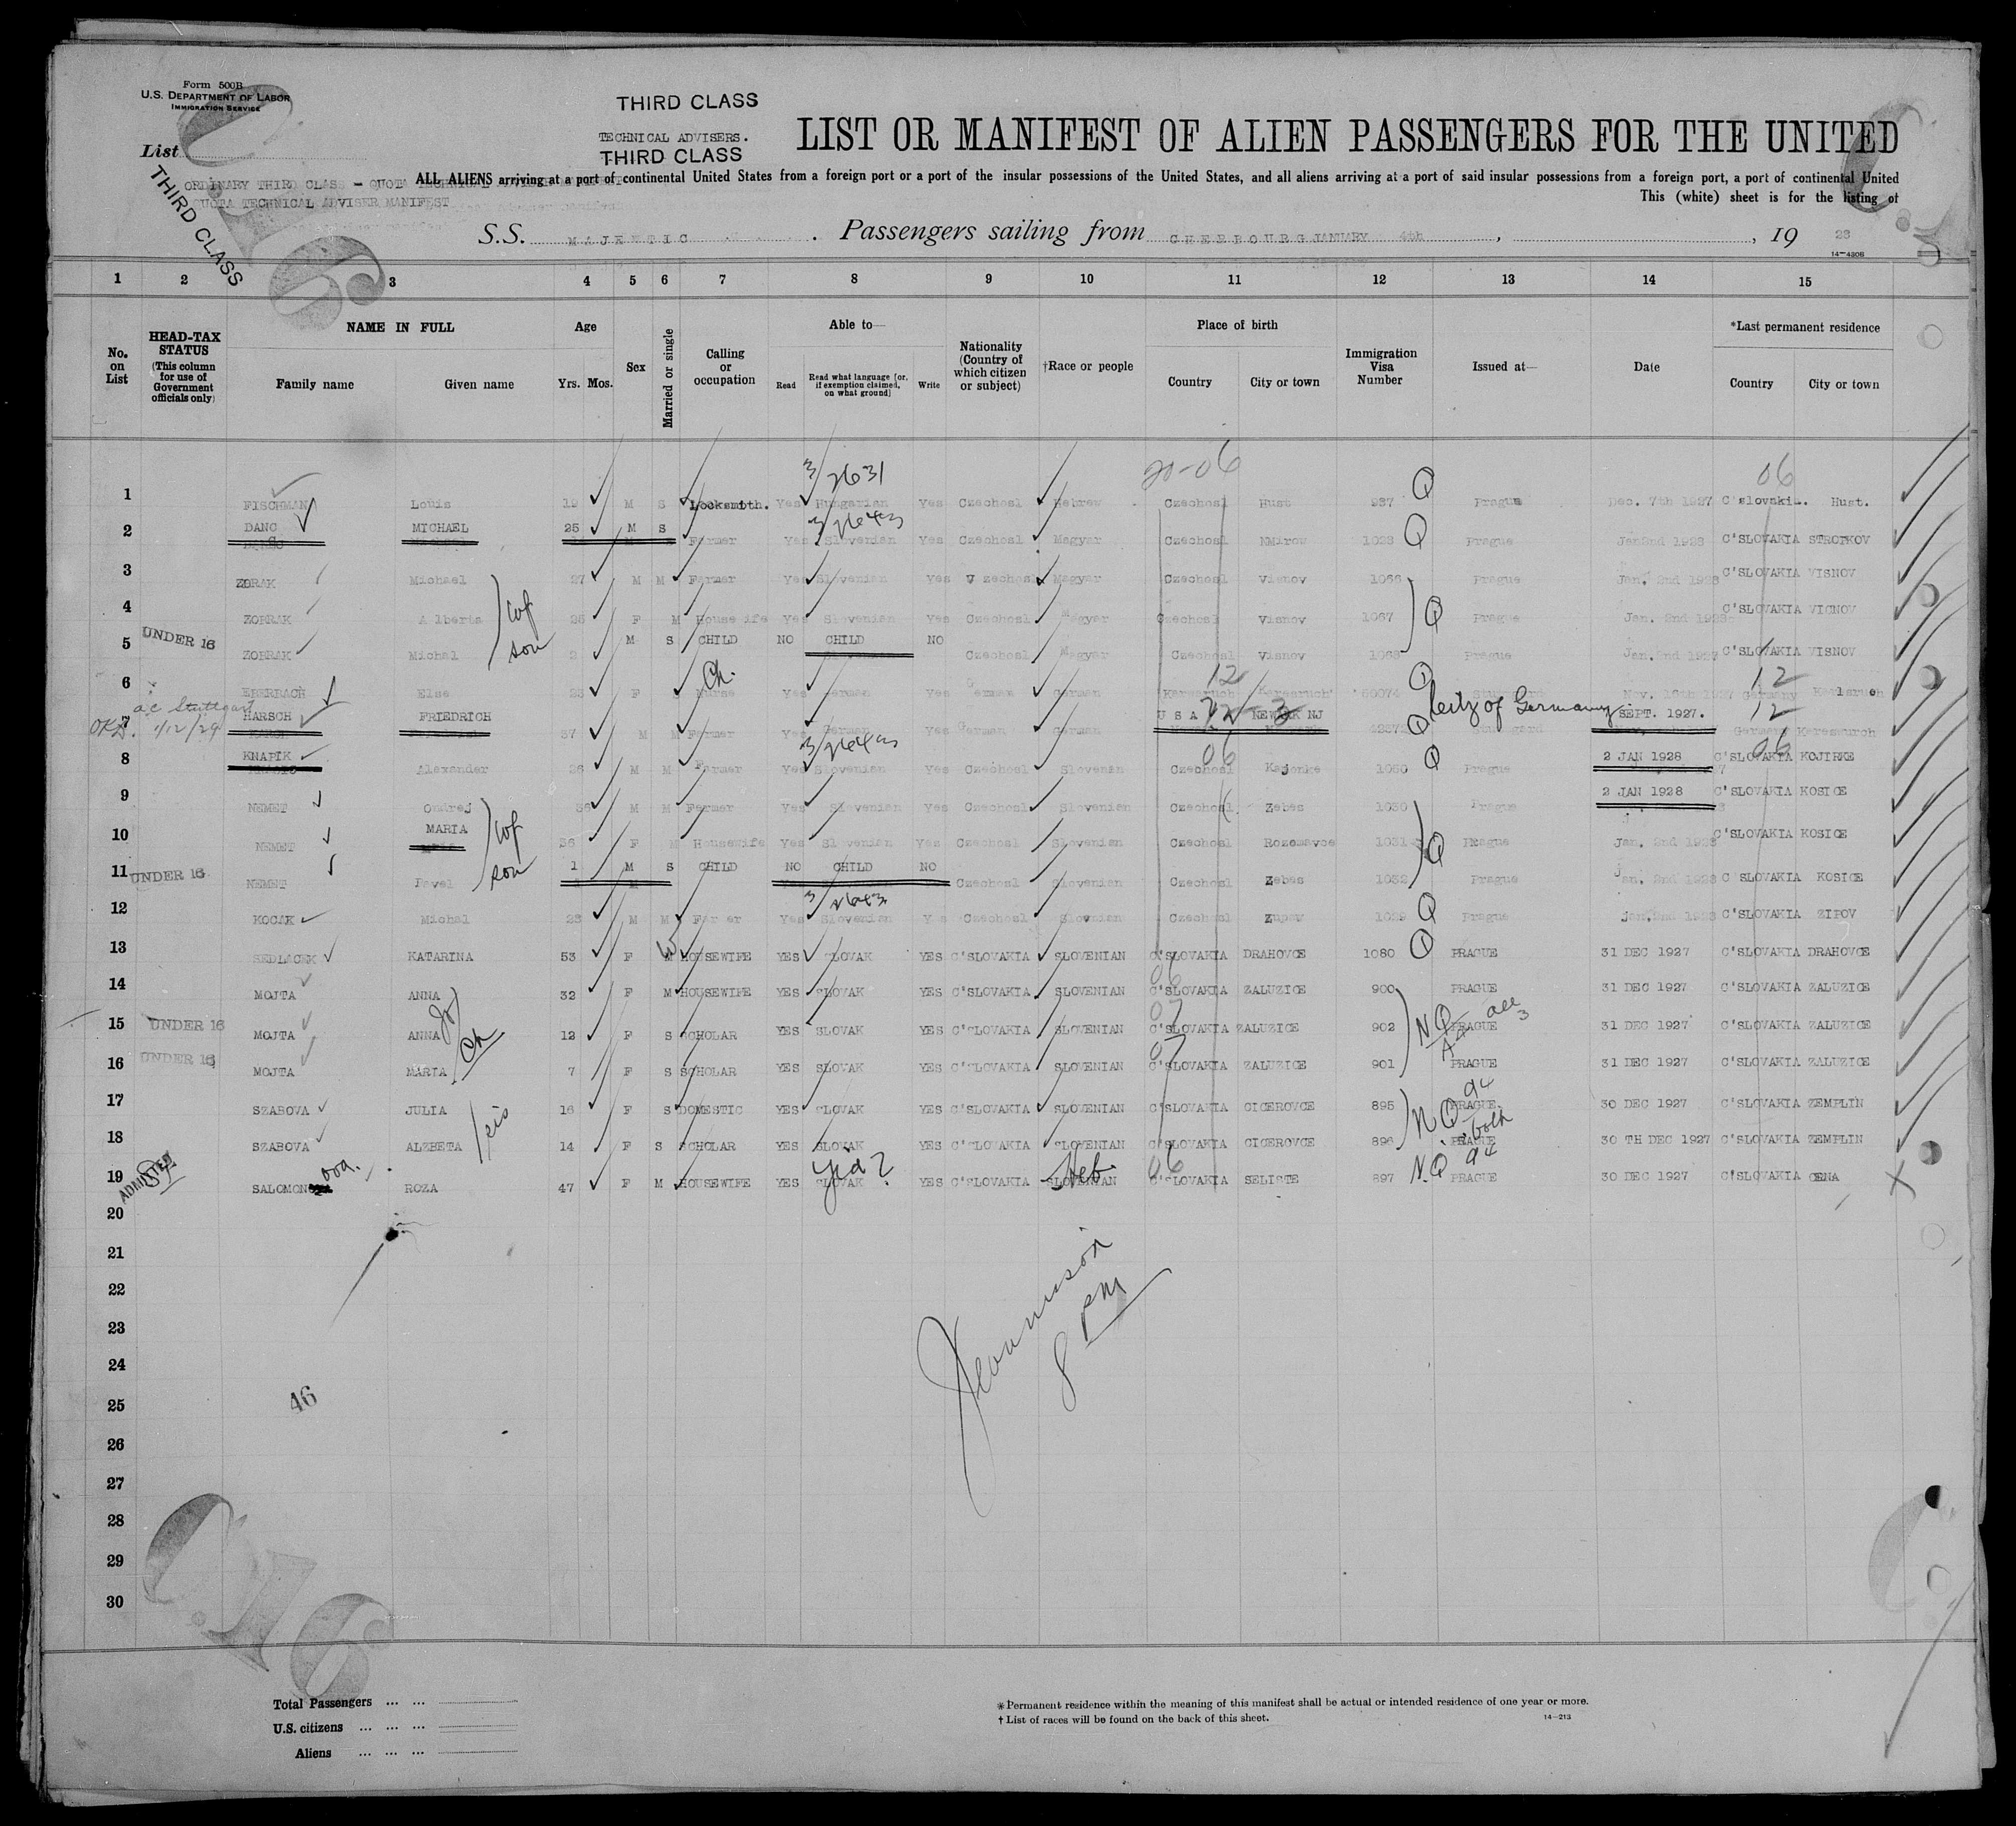 Form 500B
U.S. DEPARTMENT OF LABOR
IMMIGRATION SERVICE
THIRD CLASS
TECHNICAL ADVISERS.
THIRD CLASS
LIST OR MANIFEST OF ALIEN PASSENGERS FOR THE UNITED
List
THIRD CLASS
ORDINARY THIRD CLASS - QUOTA
QUOTA TECHNICAL ADVISER MANIFEST
ALL ALIENS arriving at a port of continental United States from a foreign port or a port of the insular possessions of the United States, and all aliens arriving at a port of said insular possessions from a foreign port, a port of continental United
This (white) sheet is for the listing of
S.S. MAJESTIC. Passengers sailing from CHERBOURG JANUARY 4th, , 19 28
14—430B
1 2 3 4 5 6 7 8 9 10 11 12 13 14 15
No. on List
HEAD-TAX STATUS (This column for use of Government officials only)
NAME IN FULL Family name Given name
Age Yrs. Mos.
Sex
Married or single
Calling or occupation
Able to— Read Read what language [or, if exemption claimed, on what ground] Write
Nationality (Country of which citizen or subject)
†Race or people
Place of birth Country City or town
Immigration Visa Number
Issued at—
Date
*Last permanent residence Country City or town
3/2631 20-06 06
1 FISCHMAN Louis 19 M S Locksmith. Yes Hungarian Yes Czechosl Hebrew Czechosl Hust 937 Q Prague Dec. 7th 1927 C'slovakia. Hust.
2 DANC MICHAEL 25 M S Farmer Yes Slovenian Yes Czechosl Magyar Czechosl 1023 Q Prague Jan 2nd 1928 C'SLOVAKIA STROPKOV
3 ZOBRAK Michael 27 M M Farmer Yes Slovenian Yes Czechosl Magyar Czechosl Visnov 1066 Prague Jan. 2nd 1928 C'SLOVAKIA VISNOV
4 ZOBRAK Alberta wf 25 F M Housewife Yes Slovenian Yes Czechosl Magyar Czechosl Visnov 1067 Q Prague Jan. 2nd 1928 C'SLOVAKIA VICNOV
5 UNDER 16 ZOBRAK Michal son 2 M S CHILD NO CHILD NO Czechosl Magyar Czechosl Visnov 1068 Prague Jan. 2nd 1927 C'SLOVAKIA VISNOV
6 EBERBACH Else 23 F S Nurse Yes German Yes German German Q Germany
a/c Stuttgart
7 OK 1/12/29 HARSCH FRIEDRICH 37 M M Farmer Yes German Yes German German U S A NEWARK NJ Q Citz of Germany SEPT. 1927. 12 Germany
8 KNAPIK Alexander 26 M M Farmer Yes Slovenian Yes Czechosl Slovenian Czechosl Kajonke 1050 Q Prague 2 JAN 1928 C'SLOVAKIA KOJIRKE
9 NEMET Ondrej 36 M M Farmer Yes Slovenian Yes Czechosl Slovenian Czechosl Zebas 1030 Prague 2 JAN 1928 C'SLOVAKIA KOSICE
10 NEMET MARIA wf 36 F M Housewife Yes Slovenian Yes Czechosl Slovenian Czechosl 1031 Q Prague Jan. 2nd 1928 C'SLOVAKIA KOSICE
11 UNDER 16 NEMET Pavel son 1 M S CHILD NO CHILD NO Czechosl Slovenian Czechosl Zebas 1032 Prague Jan. 2nd 1928 C SLOVAKIA KOSICE
12 KOCAK Michal 23 M M Farmer Yes Slovenian Yes Czechosl Slovenian Czechosl Zupov 1029 Q Prague Jan. 2nd 1928 C'SLOVAKIA ZIPOV
13 SEDLACEK KATARINA 53 F W HOUSEWIFE YES SLOVAK YES C'SLOVAKIA SLOVENIAN C'SLOVAKIA DRAHOVCE 1080 Q PRAGUE 31 DEC 1927 C'SLOVAKIA DRAHOVCE
14 MOJTA ANNA 32 F M HOUSEWIFE YES SLOVAK YES C'SLOVAKIA SLOVENIAN C'SLOVAKIA ZALUZICE 900 PRAGUE 31 DEC 1927 C'SLOVAKIA ZALUZICE
15 UNDER 16 MOJTA ANNA 12 F S SCHOLAR YES SLOVAK YES C'SLOVAKIA SLOVENIAN C'SLOVAKIA ZALUZICE 902 NQ all 3 PRAGUE 31 DEC 1927 C'SLOVAKIA ZALUZICE
16 UNDER 16 MOJTA MARIA ch 7 F S SCHOLAR YES SLOVAK YES C'SLOVAKIA SLOVENIAN C'SLOVAKIA ZALUZICE 901 PRAGUE 31 DEC 1927 C'SLOVAKIA ZALUZICE
17 SZABOVA JULIA 16 F S DOMESTIC YES SLOVAK YES C'SLOVAKIA SLOVENIAN C'SLOVAKIA CICEROVCE 895 NQ PRAGUE 30 DEC 1927 C'SLOVAKIA ZEMPLIN
18 SZABOVA ALZBETA sis 14 F S SCHOLAR YES SLOVAK YES C'SLOVAKIA SLOVENIAN C'SLOVAKIA CICEROVCE 896 both PRAGUE 30 TH DEC 1927 C'SLOVAKIA ZEMPLIN
19 ADMITTED SALOMONova. ROZA 47 F M HOUSEWIFE YES SLOVAK Yid? YES C'SLOVAKIA SLOVENIAN Heb. C'SLOVAKIA SELISTE 897 N.Q PRAGUE 30 DEC 1927 C'SLOVAKIA X
20
21
22
23
24
25
26
27
28
29
30
8 PM
46
Total Passengers
U.S. citizens
Aliens
* Permanent residence within the meaning of this manifest shall be actual or intended residence of one year or more.
† List of races will be found on the back of this sheet.
14—213